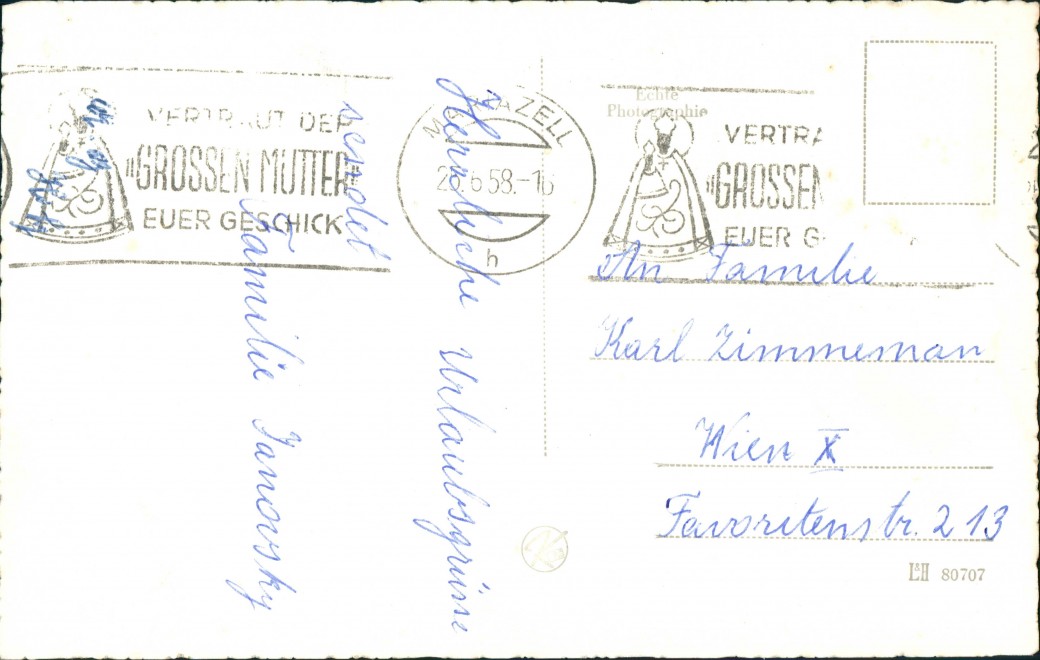 VERTRAUT DER
"GROSSEN MUTTER"
EUER GESCHICK
MARIAZELL
6 58.-16
h
Echte
Photographie
VERTRA
"GROSSEN
EUER G
Herzliche Urlaubsgrüsse
sendet
Familie Janovsky
An Familie
Karl Zimmeman
Wien X
Favoritenstr. 213
L&H 80707
K